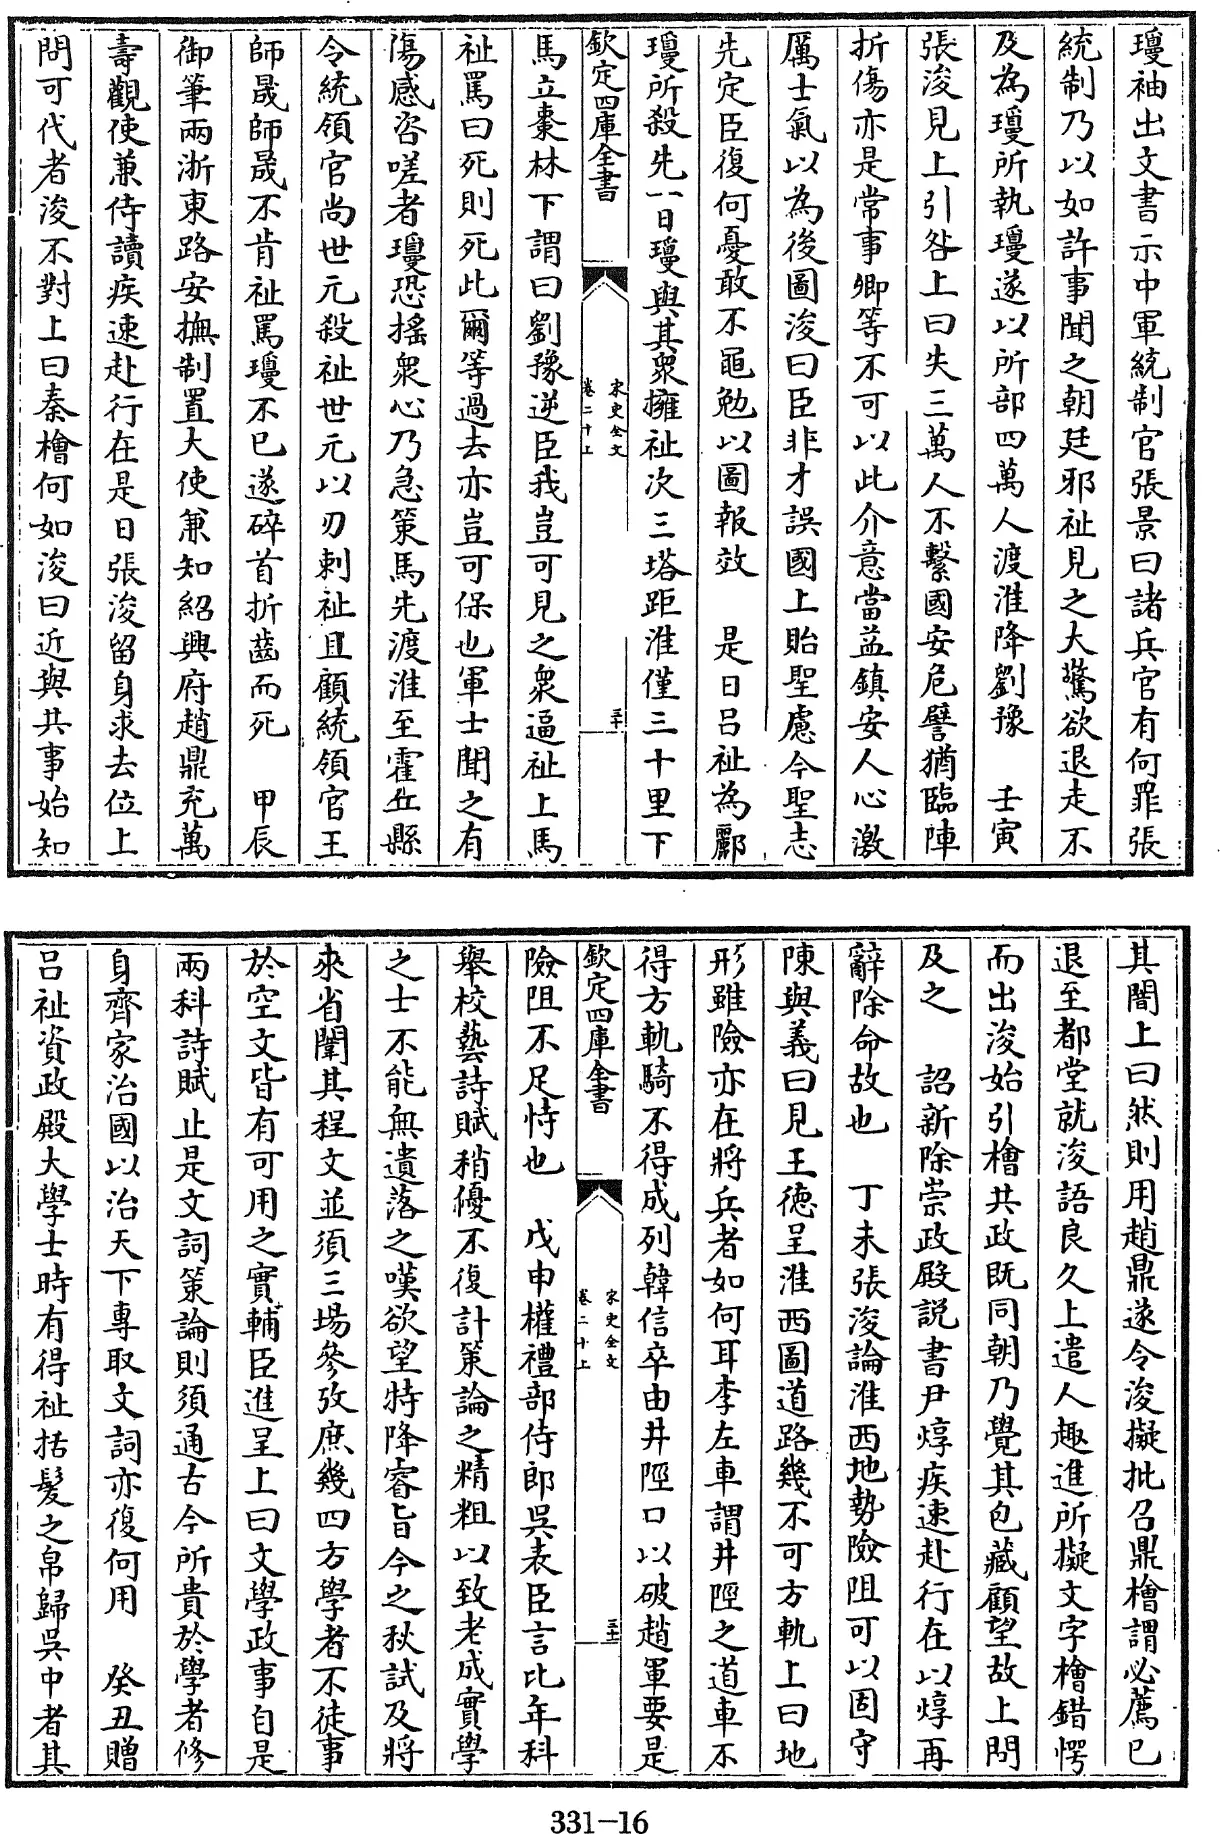 瓊袖出文書示中軍統制官張景曰諸兵官有何罪張
統制乃以如許事聞之朝廷邪祉見之大驚欲退走不
及為瓊所執瓊遂以所部四萬人渡淮降劉豫　壬寅
張浚見上引咎上曰失三萬人不繫國安危譬猶臨陣
折傷亦是常事卿等不可以此介意當益鎮安人心激
厲士氣以為後圖浚曰臣非才誤國上貽聖慮今聖志
先定臣復何憂敢不黽勉以圖報效　是日呂祉為酈
瓊所殺先一日瓊與其衆擁祉次三塔距淮僅三十里下
欽定四庫全書
宋史全文
卷二十上
三十
馬立棗林下謂曰劉豫逆臣我豈可見之衆逼祉上馬
祉罵曰死則死此爾等過去亦豈可保也軍士聞之有
傷感咨嗟者瓊恐搖衆心乃急策馬先渡淮至霍丘縣
令統領官尚世元殺祉世元以刃刺祉且顧統領官王
師晟師晟不肯祉罵瓊不已遂碎首折齒而死　甲辰
御筆兩浙東路安撫制置大使兼知紹興府趙鼎充萬
壽觀使兼侍讀疾速赴行在是日張浚留身求去位上
問可代者浚不對上曰秦檜何如浚曰近與共事始知
其闇上曰然則用趙鼎遂令浚擬批召鼎檜謂必薦已
退至都堂就浚語良久上遣人趣進所擬文字檜錯愕
而出浚始引檜共政既同朝乃覺其包藏顧望故上問
及之　詔新除崇政殿説書尹焞疾速赴行在以焞再
辭除命故也　丁未張浚論淮西地勢險阻可以固守
陳與義曰見王德呈淮西圖道路幾不可方軌上曰地
形雖險亦在將兵者如何耳李左車謂井陘之道車不
得方軌騎不得成列韓信卒由井陘口以破趙軍要是
欽定四庫全書
宋史全文
卷二十上
三十一
險阻不足恃也　戊申權禮部侍郎吳表臣言比年科
舉校藝詩賦稍優不復計策論之精粗以致老成實學
之士不能無遺落之嘆欲望特降睿旨今之秋試及將
來省闈其程文並須三場參攷庶幾四方學者不徒事
於空文皆有可用之實輔臣進呈上曰文學政事自是
兩科詩賦止是文詞策論則須通古今所貴於學者修
身齊家治國以治天下專取文詞亦復何用　癸丑贈
呂祉資政殿大學士時有得祉括髮之帛歸吳中者其
331-16